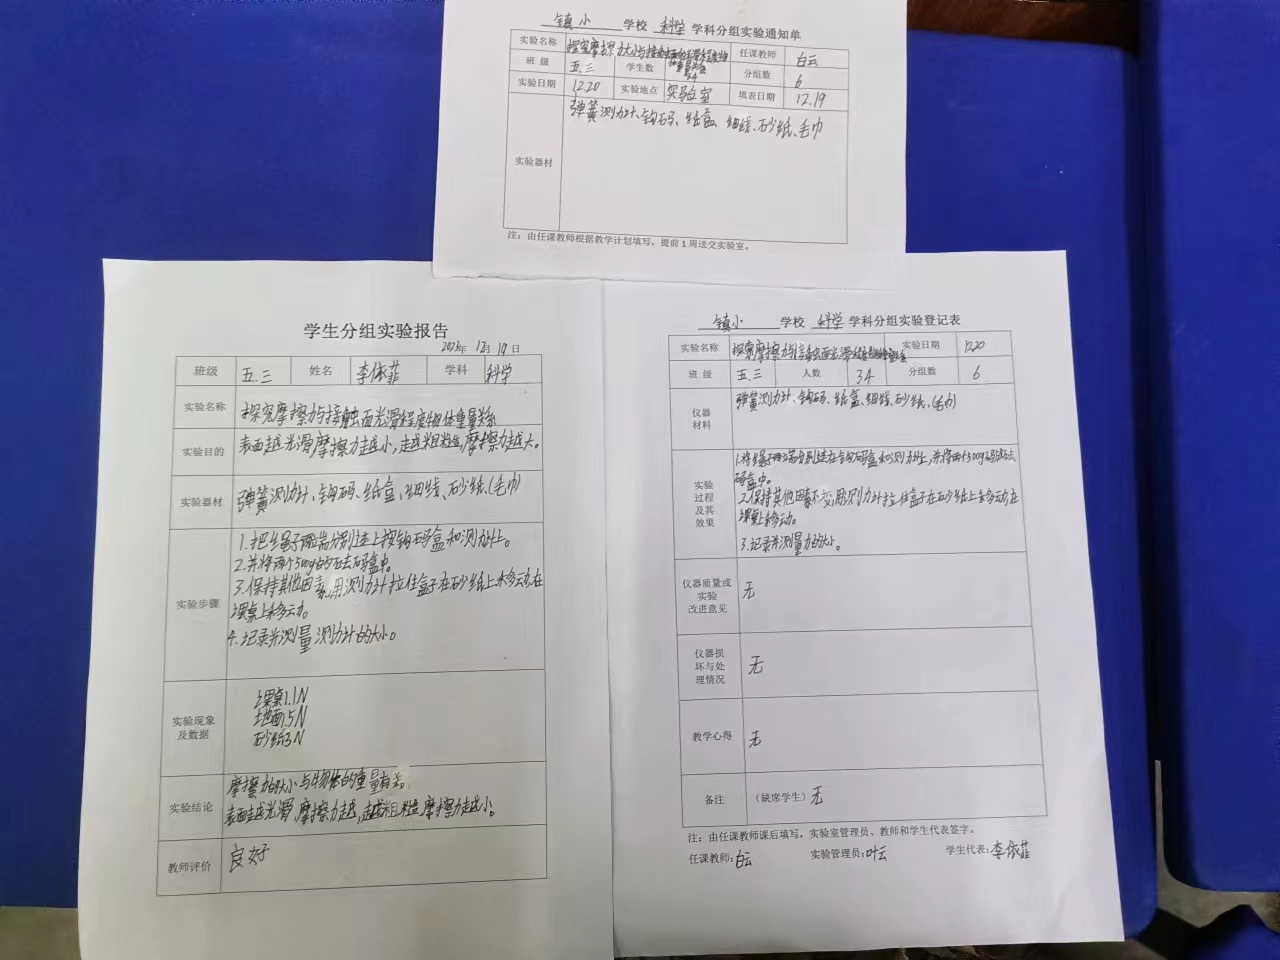 镇小 学校 科学 学科分组实验通知单
实验名称 探究摩擦力大小与接触面的光滑程度物体重量关系 任课教师 白云
班 级 五.三 学生数 34 分组数 6
实验日期 12.20 实验地点 实验室 填表日期 12.19
实验器材 弹簧测力计、钩码、纸盒、细线、砂纸、毛巾
注：由任课教师根据教学计划填写，提前1周送交实验室。
学生分组实验报告
年 12月19日
班级 五.三 姓名 李依菲 学科 科学
实验名称 探究摩擦力与接触面光滑程度物体重量关系
实验目的 表面越光滑,摩擦力越小,越粗糙,摩擦力越大。
实验器材 弹簧测力计、钩码、纸盒、细线、砂纸、(毛巾)
实验步骤
1.把绳子两端分别连上按钩码盒和测力计上。
2.并将两个500g的码盒中。
3.保持其他因素,用测力计拉住盒子在砂纸上移动在
课桌上移动。
4.记录并测量测力计的大小。
实验现象
及数据
课桌1.1N
地面1.5N
砂纸3N
实验结论
摩擦力的大小与物体的重量有关。
表面越光滑,摩擦力越,越粗糙摩擦力越小。
教师评价 良好
镇小 学校 科学 学科分组实验登记表
实验名称 探究摩擦力与接触面光滑 实验日期 12.20
班 级 五.三 人数 34 分组数 6
仪器
材料
弹簧测力计、钩码、纸盒、细线、砂纸、(毛巾)
实验
过程
及其
效果
1.将绳子两端分别连在钩码盒和测力计上,并将两个500g码
码盒中。
2.保持其他因素不变,用测力计拉住盒子在砂纸上移动在
课桌上移动。
3.记录并测量力的大小。
仪器质量或
实验
改进意见
无
仪器损
坏与处
理情况
无
教学心得 无
备注 (缺席学生) 无
注：由任课教师课后填写，实验室管理员、教师和学生代表签字。
任课教师:白云 实验管理员:叶云 学生代表:李依菲